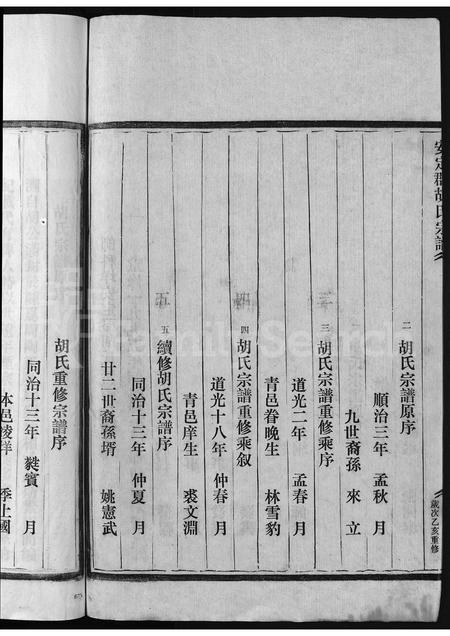 安定郡胡氏宗譜
歲次乙亥重修
二 胡氏宗譜原序
順治三年 孟秋 月
九世裔孫 來立
三 胡氏宗譜重修乘序
道光二年 孟春 月
青邑眷晚生 林雪豹
四 胡氏宗譜重修乘叙
道光十八年 仲春 月
青邑庠生 裘文淵
五 續修胡氏宗譜序
同治十三年 仲夏 月
廿二世裔孫壻 姚憲武
胡氏重修宗譜序
同治十三年 蕤賓 月
本邑 季上國
FamilySearch